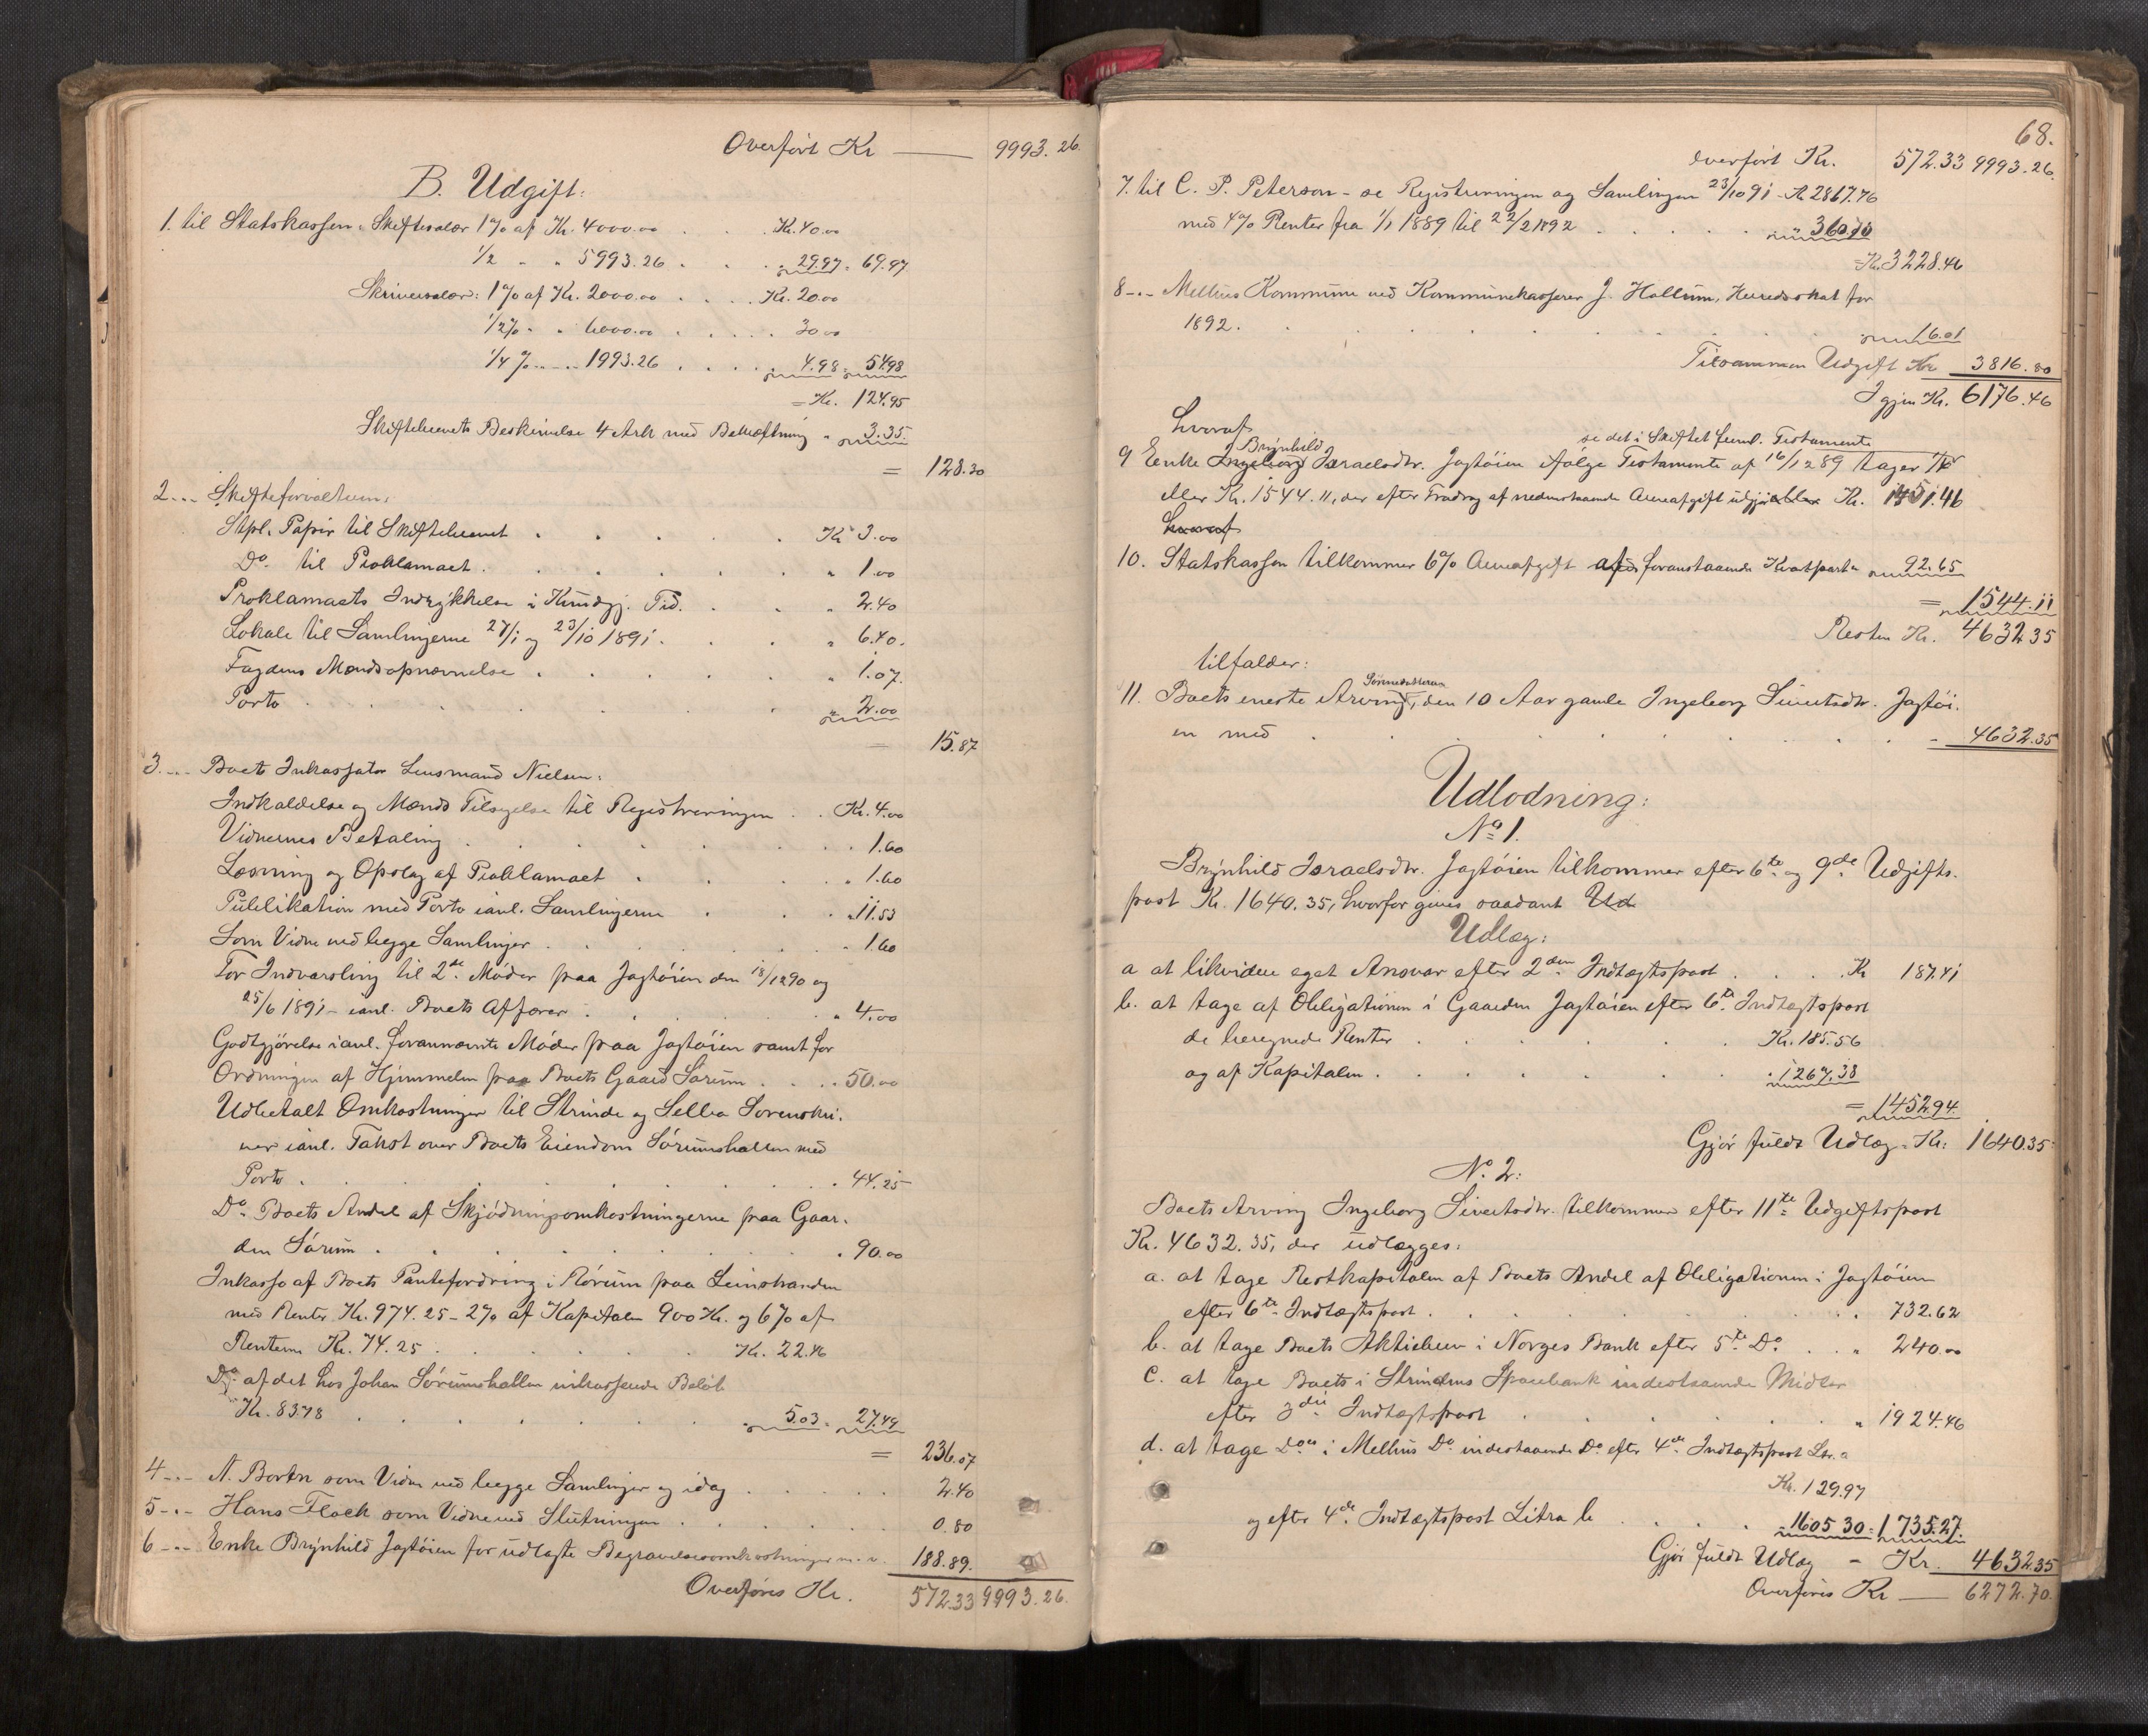 Overført Kr — 9993.26.
B. Udgift:
1. til Statskassen: Skiftesalær 1% af Kr. 4000.00 . . Kr. 40.00
1/2 " " 5993.26 . . . 29.97 = 69.97
Skriversalær: 1% af Kr. 2000.00 . . . Kr. 20.00
1/2% " " 6000.00 . . . . 30.00
1/4 % " " 1993.26 . . . . 4.98 = 54.98
= Kr. 124.95
Skiftebrevets Beskrivelse 4 Ark med Bekræftning " 3.35.
= 128.30
2 „ Skifteforvalteren:
Stpl. Papir til Skiftebrevet . . . . . Kr 3.00
Do. til Proklamaet . . . . . " 1.00
Proklamaets Indrykkelse i Kundgj. Tid. . . " 2.40
Lokale til Samlingerne 27/1 og 23/10 1891 . . . " 6.40.
Fogdens Mændsopnævnelse . . . . . " 1.07.
Porto . . . . . 2.00
= 15.87
3 „ Boets Inkassator Lensmand Nielsen:
Indkaldelse og Mænds Tilsigelse til Registreringen . . Kr. 4.00
Vidnernes Betaling . . . . . 1.60
Læsning og Opslag af Proklamaet . . . . " 1.60
Publikation med Porto ianl. Samlingerne . . . " 11.53
Som Vidne ved begge Samlinger . . . . . " 1.60
For Indvarsling til 2de Møder paa Jagtøien den 18/12 90 og
25/6 1891 – ianl. Boets Affærer . . . . " 4.00
Godtgjørelse ianl. forannævnte Møder paa Jagtøien samt for
Ordningen af Hjemmelen paa Boets Gaard Sørum . . . . 50.00
Udbetalt Omkostninger til Strinde og Selbu Sorenskri-
ver ianl. Takst over Boets Eiendom Sørumshallen med
Porto . . . . . 44.25
Do. Boets Andel af Skjødningsomkostningerne paa Gaar-
den Sørum . . . . . . 90.00
Inkasso af Boets Pantefordring i Rørum paa Leinstranden
med Renter Kr. 974.25 – 2% af Kapitalen 900 Kr. og 6% af
Renterne Kr. 74.25 . . . . . Kr. 22.46
Do. af det hos Johan Sørumshallen inkasserede Beløb
Kr. 83.78 . . . . . " 5.03 = 27.49
= 236.07
4 „ N. Borten som Vidne ved begge Samlinger og idag . . . . . 2.40
5 „ Hans Flaek som Vidne ved Slutningen . . . . . . 0.80
6 „ Enke Brynhild Jagtøien for udlagte Begravelsesomkostninger m. v. 188.89.
Overføres Kr. 572.33 9993.26.
68.
Overført Kr. 572.33 9993.26.
7. til C. P. Peterson – se Registreringen og Samlingen 23/10 91 – Kr. 2867.76
med 4% Renter fra 1/1 1889 til 22/2 1892 . . . . . " 360.70
= Kr. 3228.46
8 „ Melhus Kommune ved Kommunekasserer J. Hollum, Herredsskat for
1892. . . . . . . 16.01
Tilsammen Udgift Kr 3816.80
Igjen Kr. 6176.46
hvoraf
se det i Skiftet freml. Testamente
Brynhild
9 Enke Ingeborg Israelsdtr. Jagtøien ifølge Testamente af 16/12 89 tager 1/4
eller Kr. 1544.11, der efter Fradrag af nedenstaaende Arveafgift udgjør Kr. 1451.46
hvoraf
10. Statskassen tilkommer 6% Arveafgift af foranstaaende Kvartpart " 92.65
= 1544.11
Resten Kr. 4632.35
tilfalder:
Sønnedatteren
11. Boets eneste Arving, den 10 Aar gamle Ingeborg Sivertsdtr. Jagtøi-
en med . . . . . . 4632.35
Udlodning:
No 1.
Brynhild Israelsdtr. Jagtøien tilkommer efter 6te og 9de Udgifts-
post Kr. 1640.35, hvorfor gives saadant Ud
Udlæg:
a at likvidere eget Ansvar efter 2den Indtægtspost . . . . Kr 187.41
b. at tage af Obligationen i Gaarden Jagtøien efter 6te Indtægtspost
de beregnede Renter . . . . . Kr. 185.56
og af Kapitalen . . . . . " 1267.38
= 1452.94.
Gjør fuldt Udlæg - Kr. 1640.35
No. 2:
Boets Arving Ingeborg Sivertsdtr. tilkommer efter 11te Udgiftspost
Kr. 4632.35, der udlægges:
a. at tage Restkapitalen af Boets Andel af Obligationen i Jagtøien
efter 6te Indtægtspost . . . . . . 732.62
b. at tage Boets Aktiebrev i Norges Bank efter 5te Do . . . " 240.00
c. at tage Boets i Strindens Sparebank indestaaende Midler
efter 3die Indtægtspost . . . . . " 1924.46
d. at tage Do i Melhus Do indestaaende Do efter 4de Indtægtspost Ltr. a
Kr. 129.97
og efter 4de Indtægtspost Litra b . . . . " 1605.30 = 1735.27.
Gjør fuldt Udlæg – Kr. 4632.35
Overføres Kr — 6272.70.